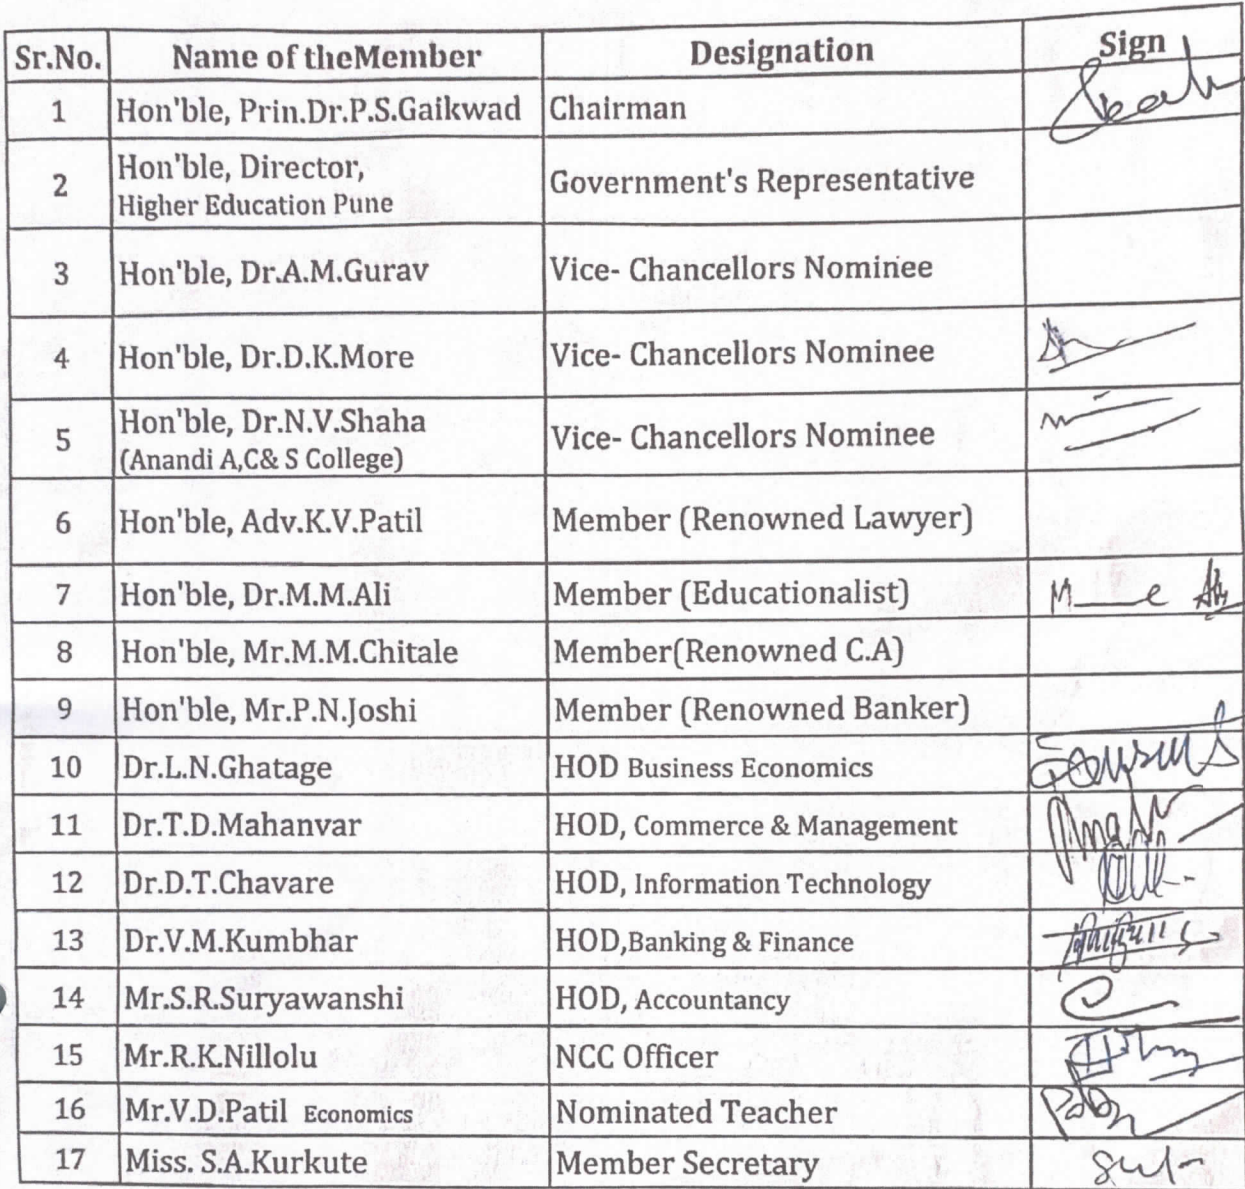 Sr.No. Name of theMember Designation Sign
1 Hon'ble, Prin.Dr.P.S.Gaikwad Chairman
2 Hon'ble, Director, Government's Representative
Higher Education Pune
3 Hon'ble, Dr.A.M.Gurav Vice- Chancellors Nominee
4 Hon'ble, Dr.D.K.More Vice- Chancellors Nominee
5 Hon'ble, Dr.N.V.Shaha Vice- Chancellors Nominee
(Anandi A,C& S College)
6 Hon'ble, Adv.K.V.Patil Member (Renowned Lawyer)
7 Hon'ble, Dr.M.M.Ali Member (Educationalist)
8 Hon'ble, Mr.M.M.Chitale Member(Renowned C.A)
9 Hon'ble, Mr.P.N.Joshi Member (Renowned Banker)
10 Dr.L.N.Ghatage HOD Business Economics
11 Dr.T.D.Mahanvar HOD, Commerce & Management
12 Dr.D.T.Chavare HOD, Information Technology
13 Dr.V.M.Kumbhar HOD,Banking & Finance
14 Mr.S.R.Suryawanshi HOD, Accountancy
15 Mr.R.K.Nillolu NCC Officer
16 Mr.V.D.Patil Economics Nominated Teacher
17 Miss. S.A.Kurkute Member Secretary